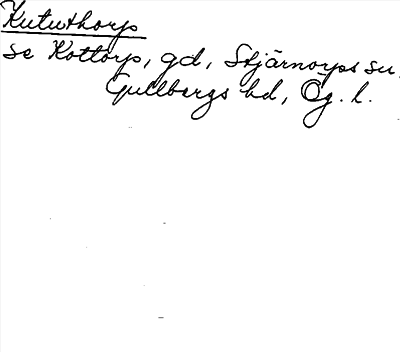 Kututhorp
se Kottorp, gd, Stjärnorps sn,
Gullbergs hd, Ög. l.